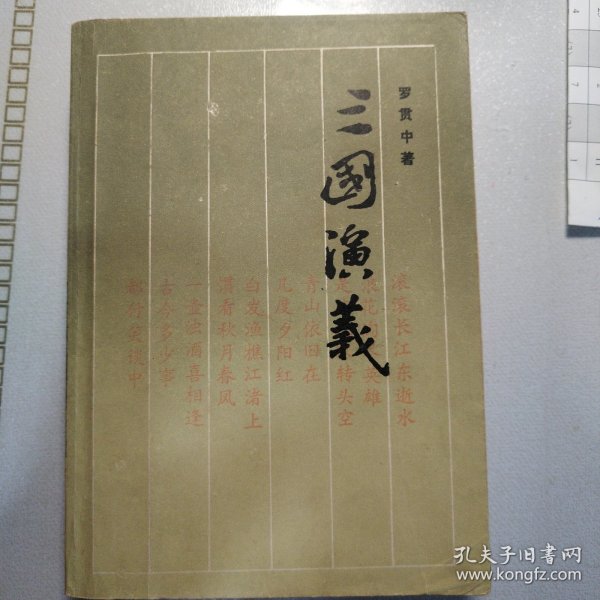 罗贯中著
三國演義
滚滚长江东逝水
浪花 英雄
转头空
青山依旧在
几度夕阳红
白发渔樵江渚上
惯看秋月春风
一壶浊酒喜相逢
古今多少事
都付笑谈中
孔夫子旧书网
www.kongfz.com